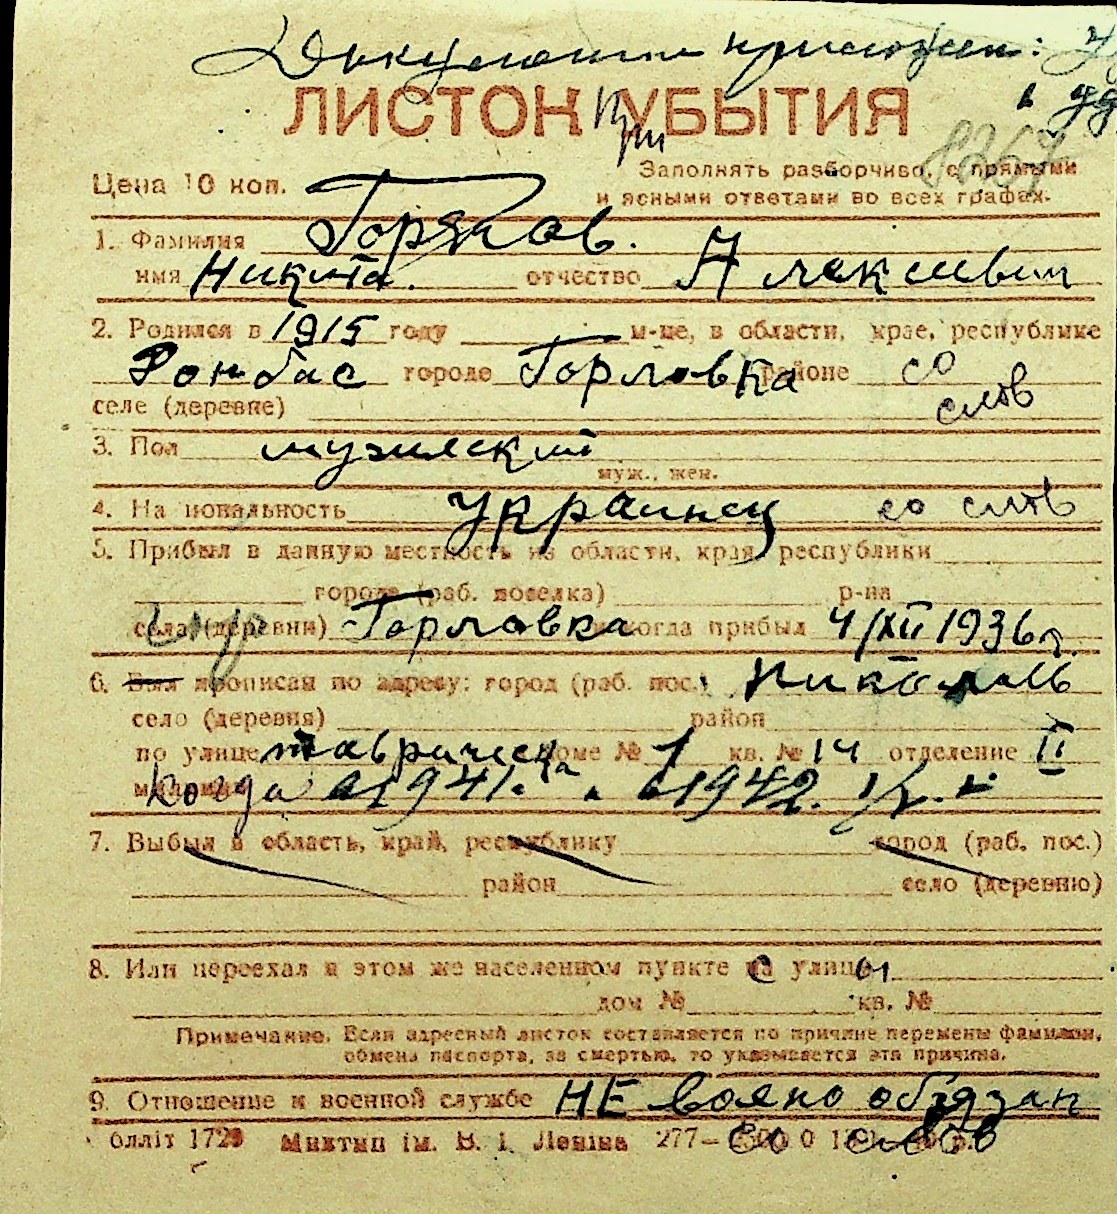 Документы приложен:
ЛИСТОК УБЫТИЯ
при
8367
Цена 10 коп.
Заполнять разборчиво, с прямыми
и ясными ответами во всех графах.
1. Фамилия Горяков.
имя Никита. отчество Алексевич
2. Родился в 1915 году м-це, в области, крае, республике
Донбас городе Горловка районе со
селе (деревне) слов
3. Пол мужский
муж., жен.
4. Национальность украинец со слов
5. Прибыл в данную местность из области, края, республики
города (раб. поселка) р-на
села (деревни) Горловка и когда прибыл 4/XII 1936г.
6. Был прописан по адресу: город (раб. пос.) Никополь
село (деревня) район
по улице таврическа доме № 1 кв. № 14 отделение II
когда в 1941. и в 1942.
7. Выбыл в область, край, республику город (раб. пос.)
район село (деревню)
8. Или переехал в этом же населенном пункте на улицу
дом № кв. №
Примечание. Если адресный листок составляется по причине перемены фамилии,
обмена паспорта, за смертью, то указывается эта причина.
9. Отношение к военной службе НЕ вояно обязан
блліт 172 Миктип ім. В. І. Леніна 277— со слов